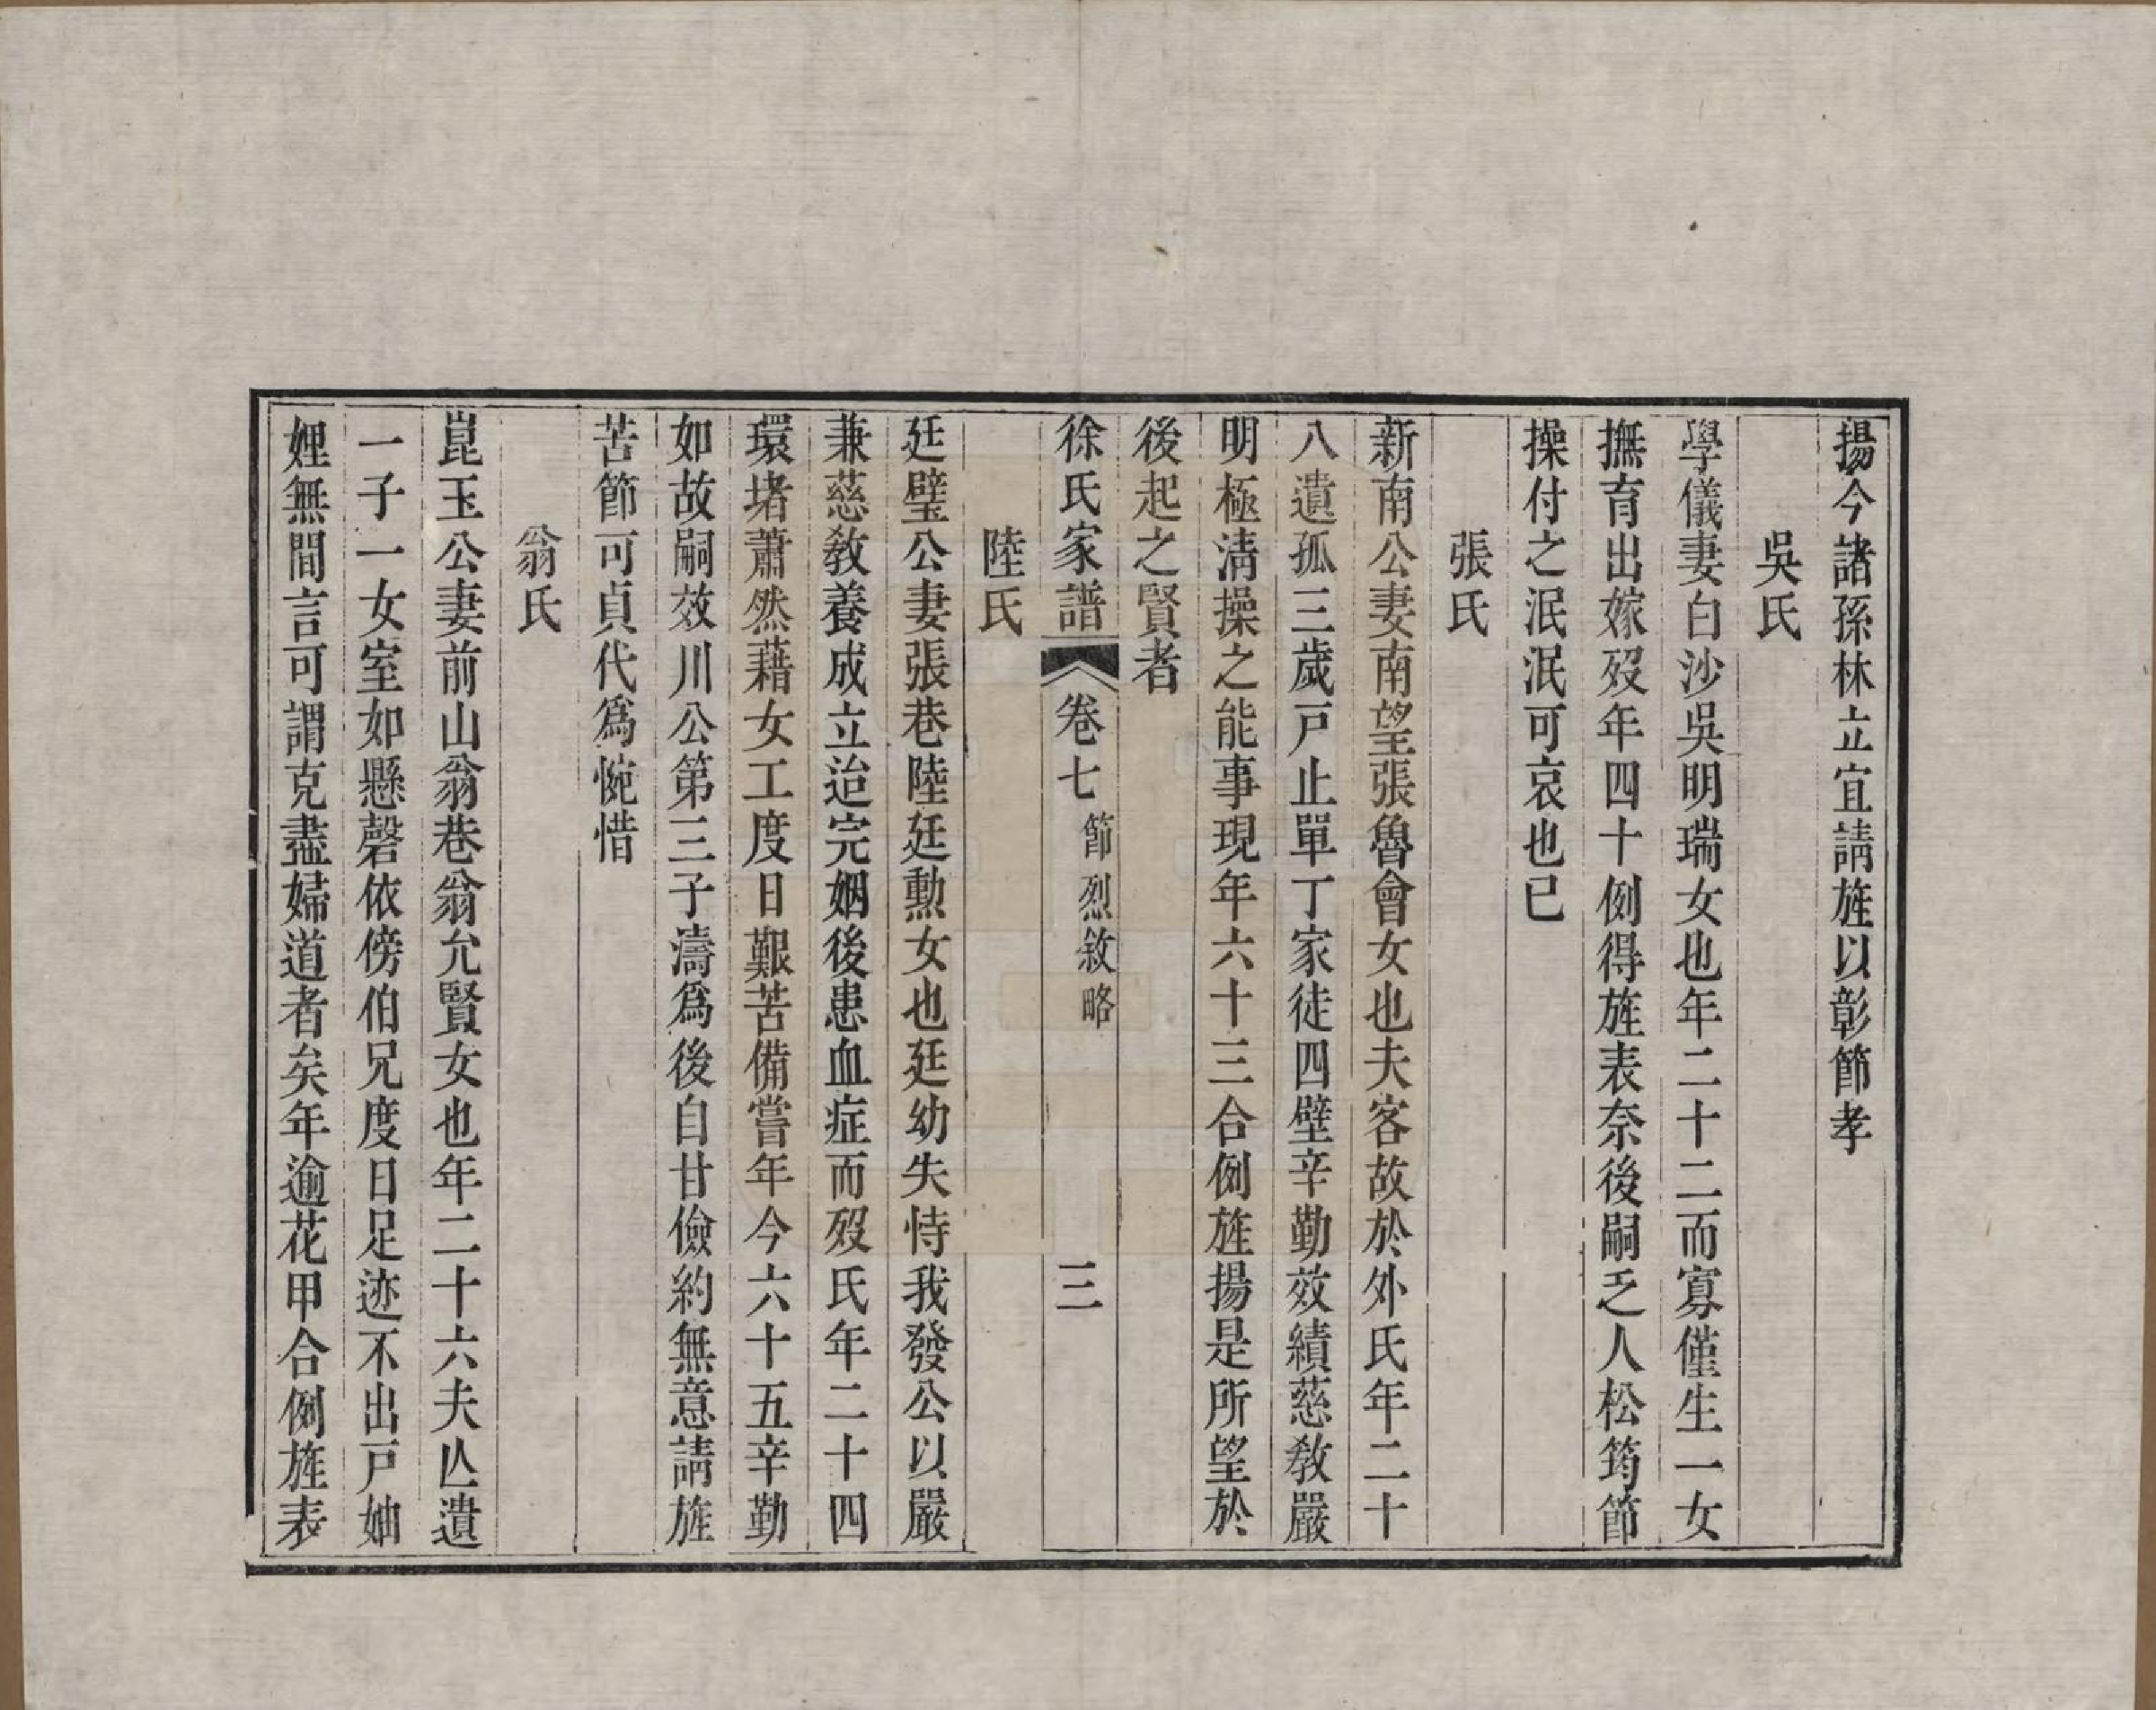 揚今諸孫林立宜請旌以彰節孝
吳氏
學儀妻白沙吳明瑞女也年二十二而寡僅生一女
撫育出嫁歿年四十例得旌表奈後嗣乏人松筠節
操付之泯泯可哀也已
張氏
新南公妻南望張魯會女也夫客故於外氏年二十
八遺孤三歲戸止單丁家徒四壁辛勤效績慈敎嚴
明極淸操之能事現年六十三合例旌揚是所望於
後起之賢者
徐氏家譜
卷七
節烈敘略
三
陸氏
廷璧公妻張巷陸廷勲女也廷幼失恃我發公以嚴
兼慈敎養成立迨完姻後患血症而歿氏年二十四
環堵蕭然藉女工度日艱苦備嘗年今六十五辛勤
如故嗣效川公第三子濤爲後自甘儉約無意請旌
苦節可貞代爲惋惜
翁氏
崑玉公妻前山翁巷翁允賢女也年二十六夫亾遺
一子一女室如懸磬依傍伯兄度日足迹不出戸妯
娌無間言可謂克盡婦道者矣年逾花甲合例旌表